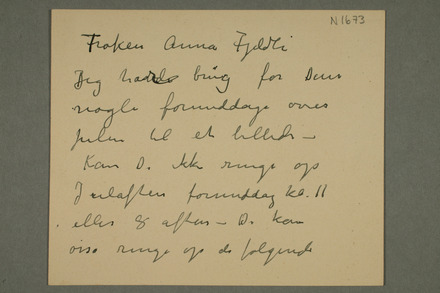 N1673
Frøken Anna Fjeldli
Jeg havde brug for Dem
nogle formiddage over
julen til et billede –
Kan De ikke ringe op
Juleaften formiddag kl. 11
eller 8 aften – De kan
osso ringe op de følgende